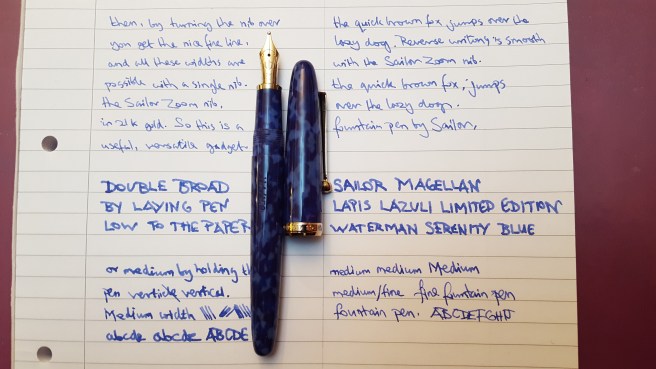 then, by turning the nib over
you get the nice fine line,
and all these widths are
possible with a single nib.
the Sailor Zoom nib,
in 21k gold. So this is a
useful, versatile gadget.
DOUBLE BROAD
BY LAYING PEN
LOW TO THE PAPER
or medium by holding th
pen verticle vertical.
Medium width
abcde abcde ABCDE
the quick brown fox jumps over the
lazy dog. Reverse writing is smooth
with the Sailor Zoom nib.
the quick brown fox, jumps
over the lazy dog.
fountain pen by Sailor,
SAILOR MAGELLAN
LAPIS LAZULI LIMITED EDITION
WATERMAN SERENITY BLUE
medium medium Medium
medium/fine fine fountain pen
fountain pen. ABCDEFGHIJ